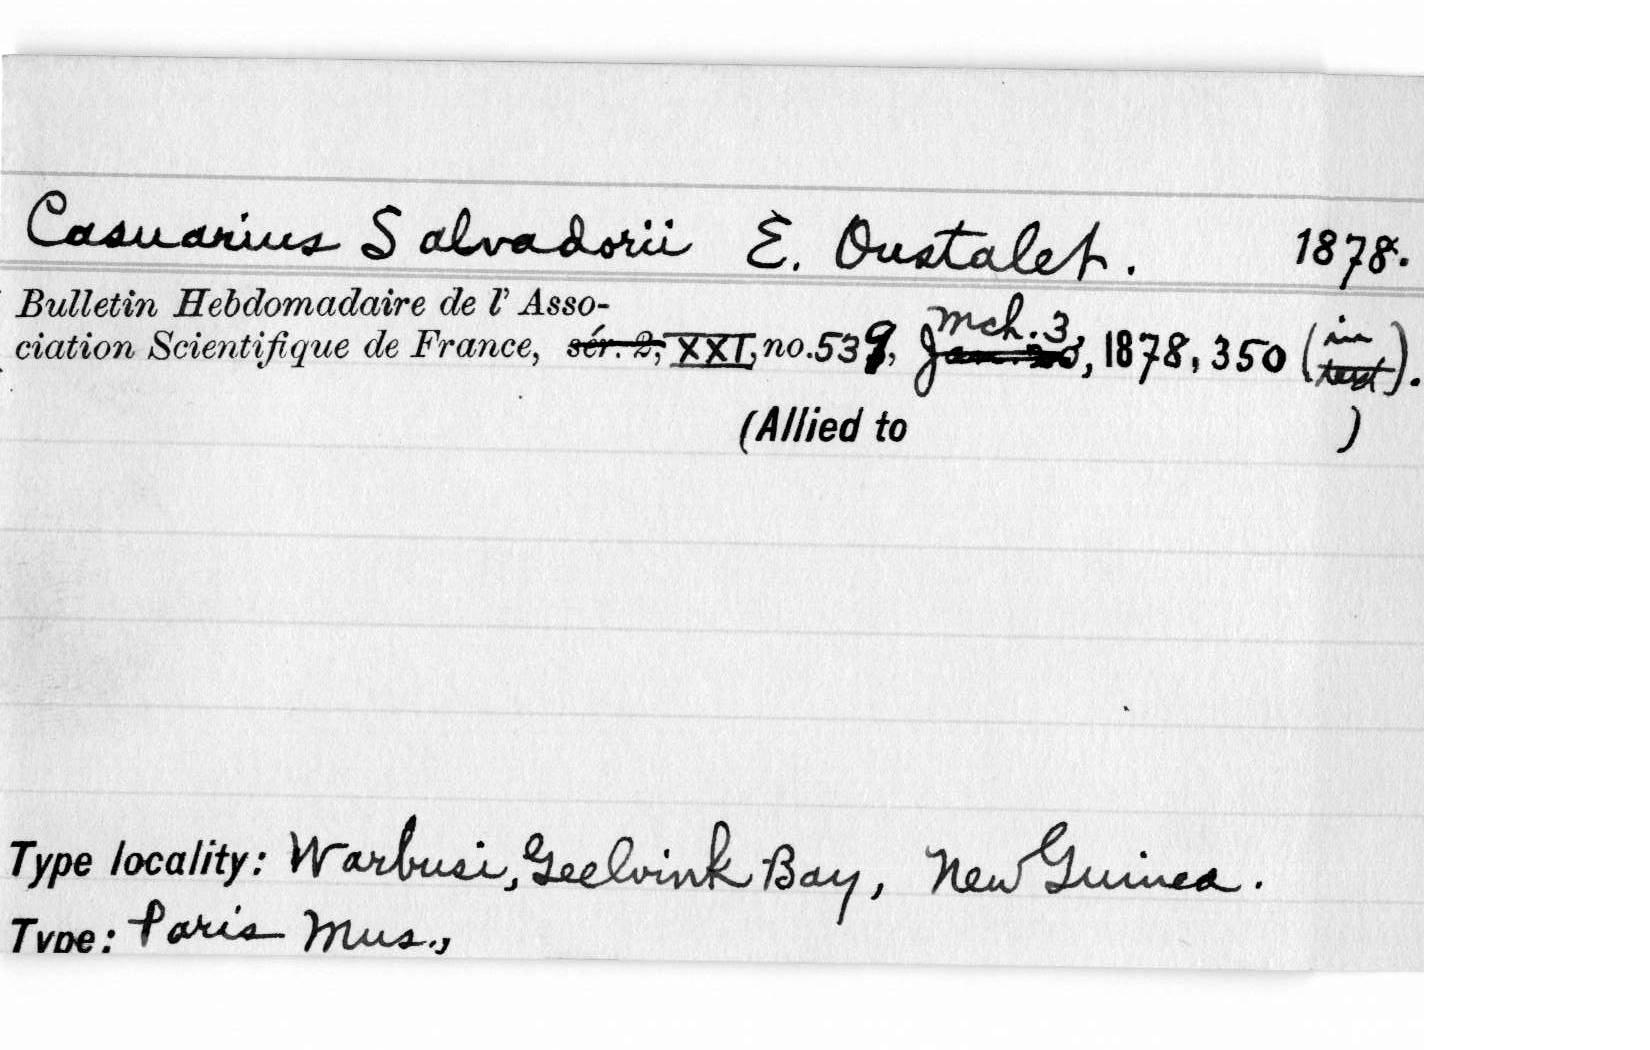 Casuarius Salvadorii E. Oustalet. 1878.
Bulletin Hebdomadaire de l' Asso-
ciation Scientifique de France, sér. 2, XXI, no. 539, Mch. 3, 1878, 350 (in text).
(Allied to )
Type locality: Warbusi, Geelvink Bay, New Guinea.
Type: Paris Mus.,